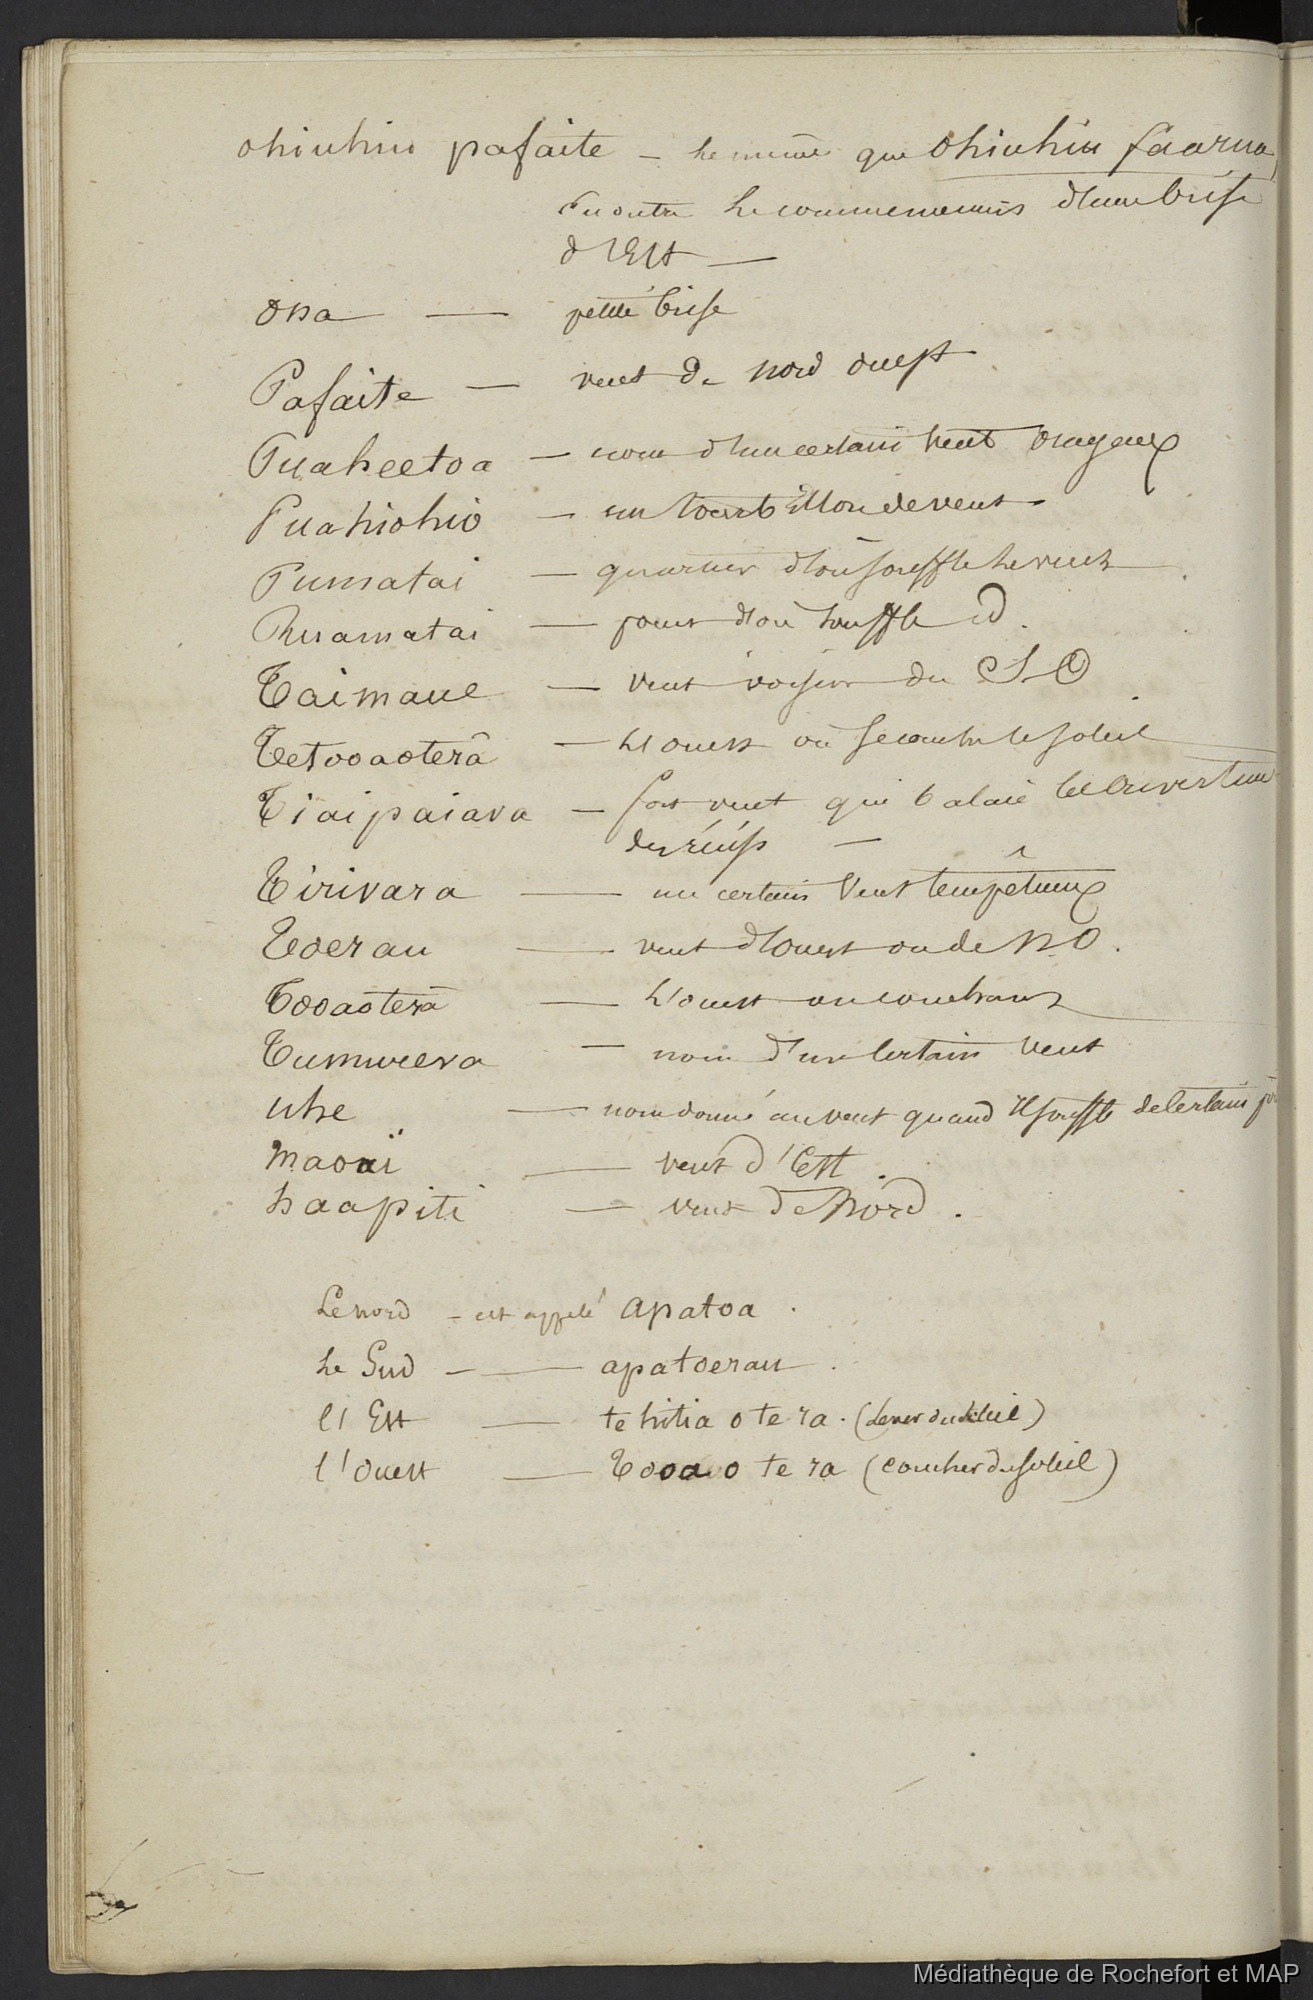 ohiuhiu pafaite — le même que Ohiuhiu faarua,
en outre le commencement d'une brise
d'Est —
Ona — petite brise
Pafaite — vent de nord ouest
Puaheetoa — nom d'un certain vent orageux
Puahiohio — un tourbillon de vent
Pumatai — quartier d'où souffle le vent
Ruamatai — point d'où souffle id.
Taimaue — vent voisin du S O
Tetooaoterâ — L'ouest où se couche le soleil
Tiaipaiava — fort vent qui balaie les ouvertures
des récifs —
Tirivara — un certain vent tempêtueux
Toerau — vent d'ouest ou de N O.
Tooaoterâ — L'ouest ou couchant
Tumureva — nom d'un certain vent
uhe — nom donné au vent quand il souffle de certain
Maoaï — vent d'Est.
haapiti — vent de Nord.
Le nord — est appelé apatoa.
Le Sud — apatoerau.
l'Est — te hitia o te ra. (Lever du soleil)
l'Ouest — Tooa o te ra (coucher du soleil)
Médiathèque de Rochefort et MAP